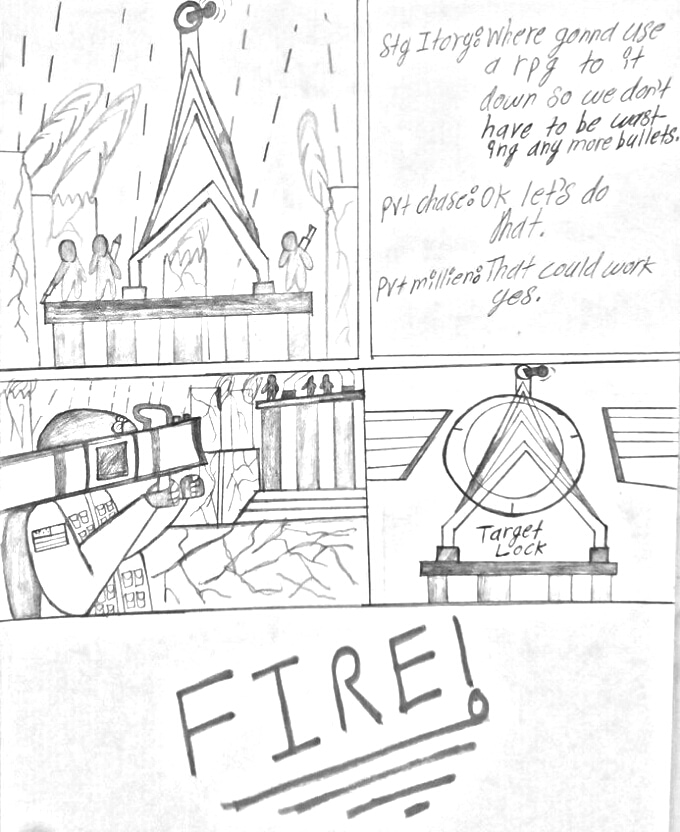 Stg Itorg: Where gonna use
a rpg to it
down so we don't
have to be wast
ing any more bullets.
Pvt chase: Ok let's do
that.
Pvt millien: That could work
yes.
Target
Lock
FIRE!